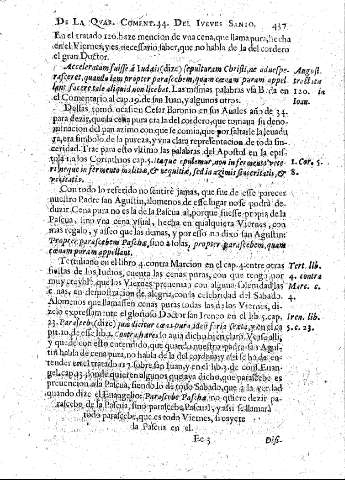 DE LA QVAR. COMENT. 44. DEL IVEVES SANTO. 437
En el tratado 120. haze mencion de vna cena, que llama pura, hecha
en el Viernes, y es necessario saber, que no habla de la del cordero
el gran Doctor.
Acceleratam fuisse à Iudæis (dize) sepulturam Christi, ne aduespe-
rasceret, quando iam propter parascebem, quam cœnam puram appel-
lant facere tale aliquid non licebat. Las mismas palabras vsa Beda en
el Comentario al cap. 19. de san Iuan, y algunos otros.
August.
tract.
120. in
Ioan.
Destas tomò ocasion Cesar Baronio en sus Anales año de 34.
para dezir, que la cena pura era la del cordero, que tomaua su deno-
minacion del pan azimo con que le comia, que por faltarle la leuadu
ra, era simbolo de la pureza, y vna clara representacion de toda sin-
ceridad. Trae para esto vltimo las palabras del Apostol en la epis-
tola 1. a los Corinthios cap. 5. itaque epulemur, non in fermento vete
ri neque in fermento malitiæ, & nequitiæ, sed in azimis sinceritatis, &
veritatis.
1. Cor. 5.
8.
Con todo lo referido no sentirè jamas, que fue de esse parecer
nuestro Padre san Agustin, alomenos de esse lugar no se podrà de-
duzir. Cena pura no es la de la Pascua al, porque fuesse propia de la
Pascua, sino vna cena vsual, hecha en qualquiera Viernes, con
mas regalo, y asseo que las demas, y por esso no dixo san Agustin:
Propter parascebem Paschæ, sino a solas, propter parascebem, quam
cœnam puram appellant.
Tertuliano en el libro 4. contra Marcion en el cap. 4. entre otras
fiestas de los Iudios, cuenta las cenas puras, con que tengo por
muy creyble, que los Viernes preuenian con alguna salenidad las
cenas, en demostracion de alegria, con la celebridad del Sabado.
Tert. lib.
4. contra
Marc. c.
4.
Alomenos que llamassen cenas puras todas las de los Viernes, di-
zelo expressamente el glorioso Doctor san Ireneo en el lib. 5. cap.
23. Parascebe (dize) quæ dicitur cœna pura, id est sexta feria, y en el ca
pit. 10. de esse libro, contra hæreses lo auia dicho bien claro. Vease alli,
Iren. lib.
5. c. 23.
y quede con esto entendido, que quando nuestro padre san Agus-
tin habla de cena pura, no habla de la del cordero, y assi se ha de en-
tender en el tratado 117. sobre san Iuan, y en el lib. 3. de cons. Euan-
gel. cap. 13. donde quieren algunos que aya dicho, que parascebe es
preuencion a la Pascua, siendolo de todo Sabado, que a la verdad
quando dize el Euangelio: Parascebe Paschæ, no quiere dezir pa-
rascebe de la Pascua, sino parascebe Pascual, y assi se llamarà
todo parascebe, que es todo Viernes, si cayere
la Pascua en el.
Ee 3 Dis-